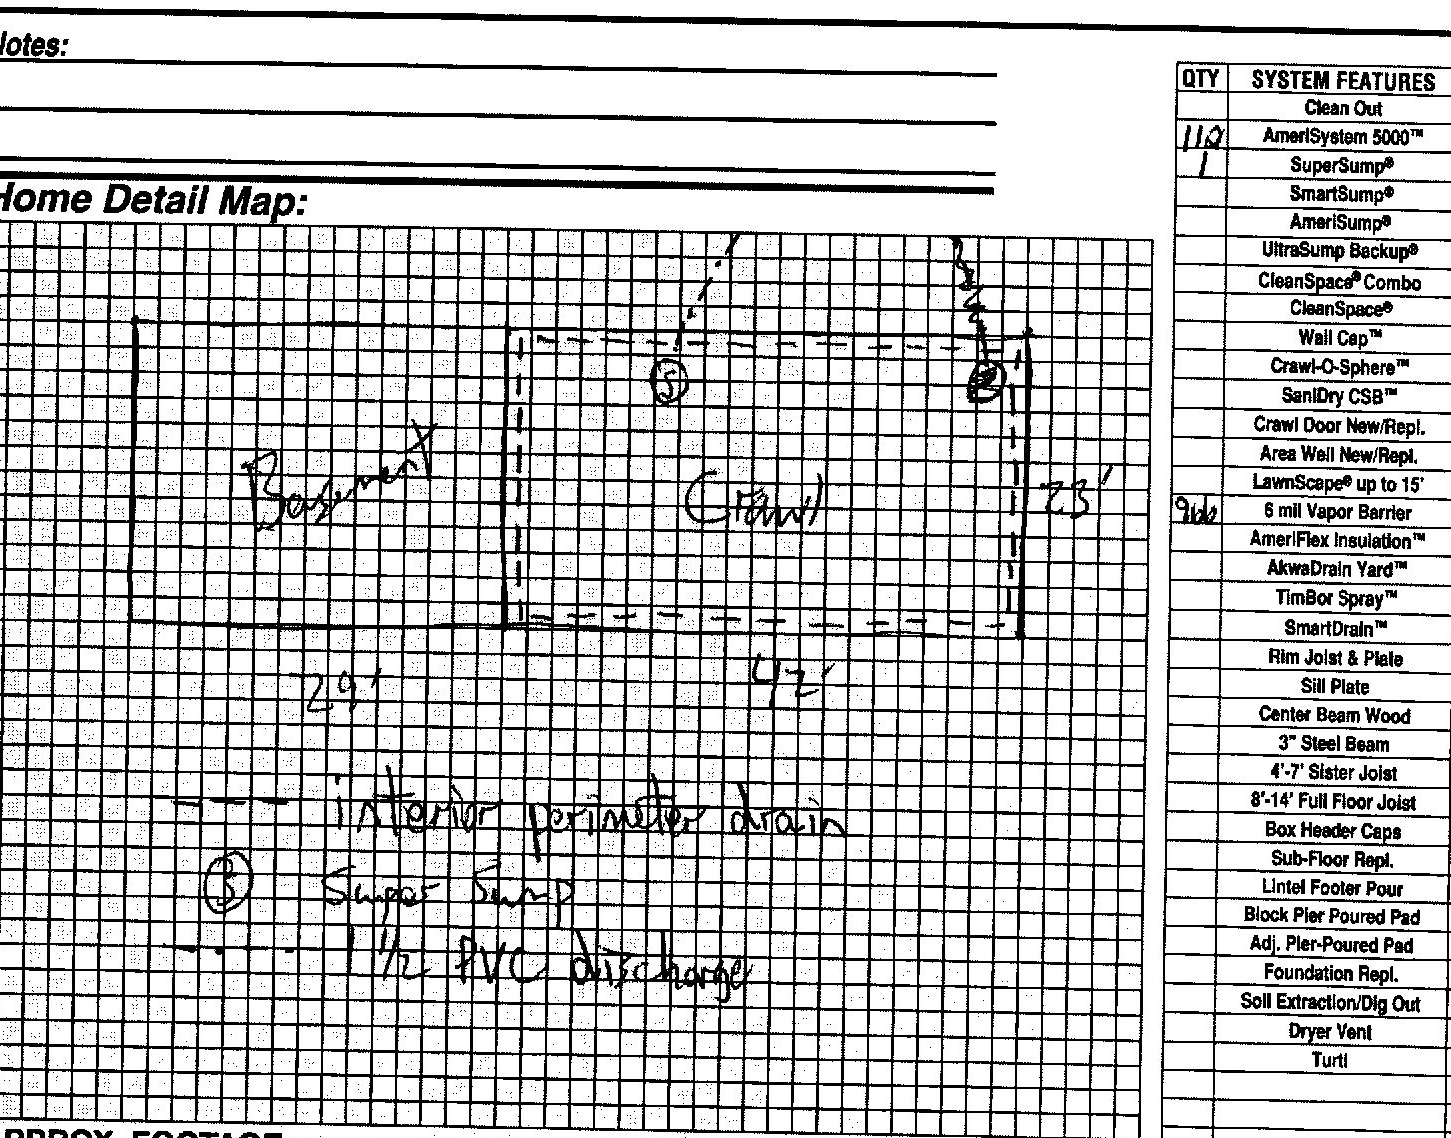 Notes:
Home Detail Map:
S
Basement
Crawl
23'
29'
42'
interior perimeter drain
S Super Sump
1 1/2 PVC discharge
QTY SYSTEM FEATURES
Clean Out
AmeriSystem 5000™
1 SuperSump®
SmartSump®
AmeriSump®
UltraSump Backup®
CleanSpace® Combo
CleanSpace®
Wall Cap™
Crawl-O-Sphere™
SaniDry CSB™
Crawl Door New/Repl.
Area Well New/Repl.
LawnScape® up to 15'
6 mil Vapor Barrier
AmeriFlex Insulation™
AkwaDrain Yard™
TimBor Spray™
SmartDrain™
Rim Joist & Plate
Sill Plate
Center Beam Wood
3" Steel Beam
4'-7' Sister Joist
8'-14' Full Floor Joist
Box Header Caps
Sub-Floor Repl.
Lintel Footer Pour
Block Pier Poured Pad
Adj. Pier-Poured Pad
Foundation Repl.
Soil Extraction/Dig Out
Dryer Vent
Turtl